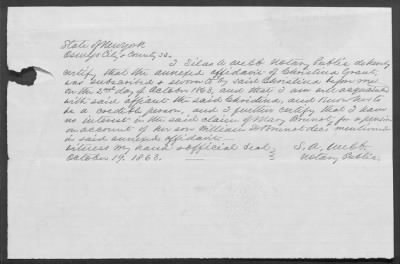 State of New York
Oswego City & County ss.
I Silas A Webb Notary Public do hereby
certify that the annexed affidavit of Christina Grant,
was subscribed & sworn to by said Christina before me
on the 2nd day of October 1863, and that I am well acquainted
with said affiant the said Christina, and know her to
be a credible person, and I further certify that I have
no interest in the said claim of Mary for a pension
on account of her son William dec'd mentioned
in said annexed affidavit —
Witness my hand & official seal
October 19, 1863. S. A. Webb
Notary Public